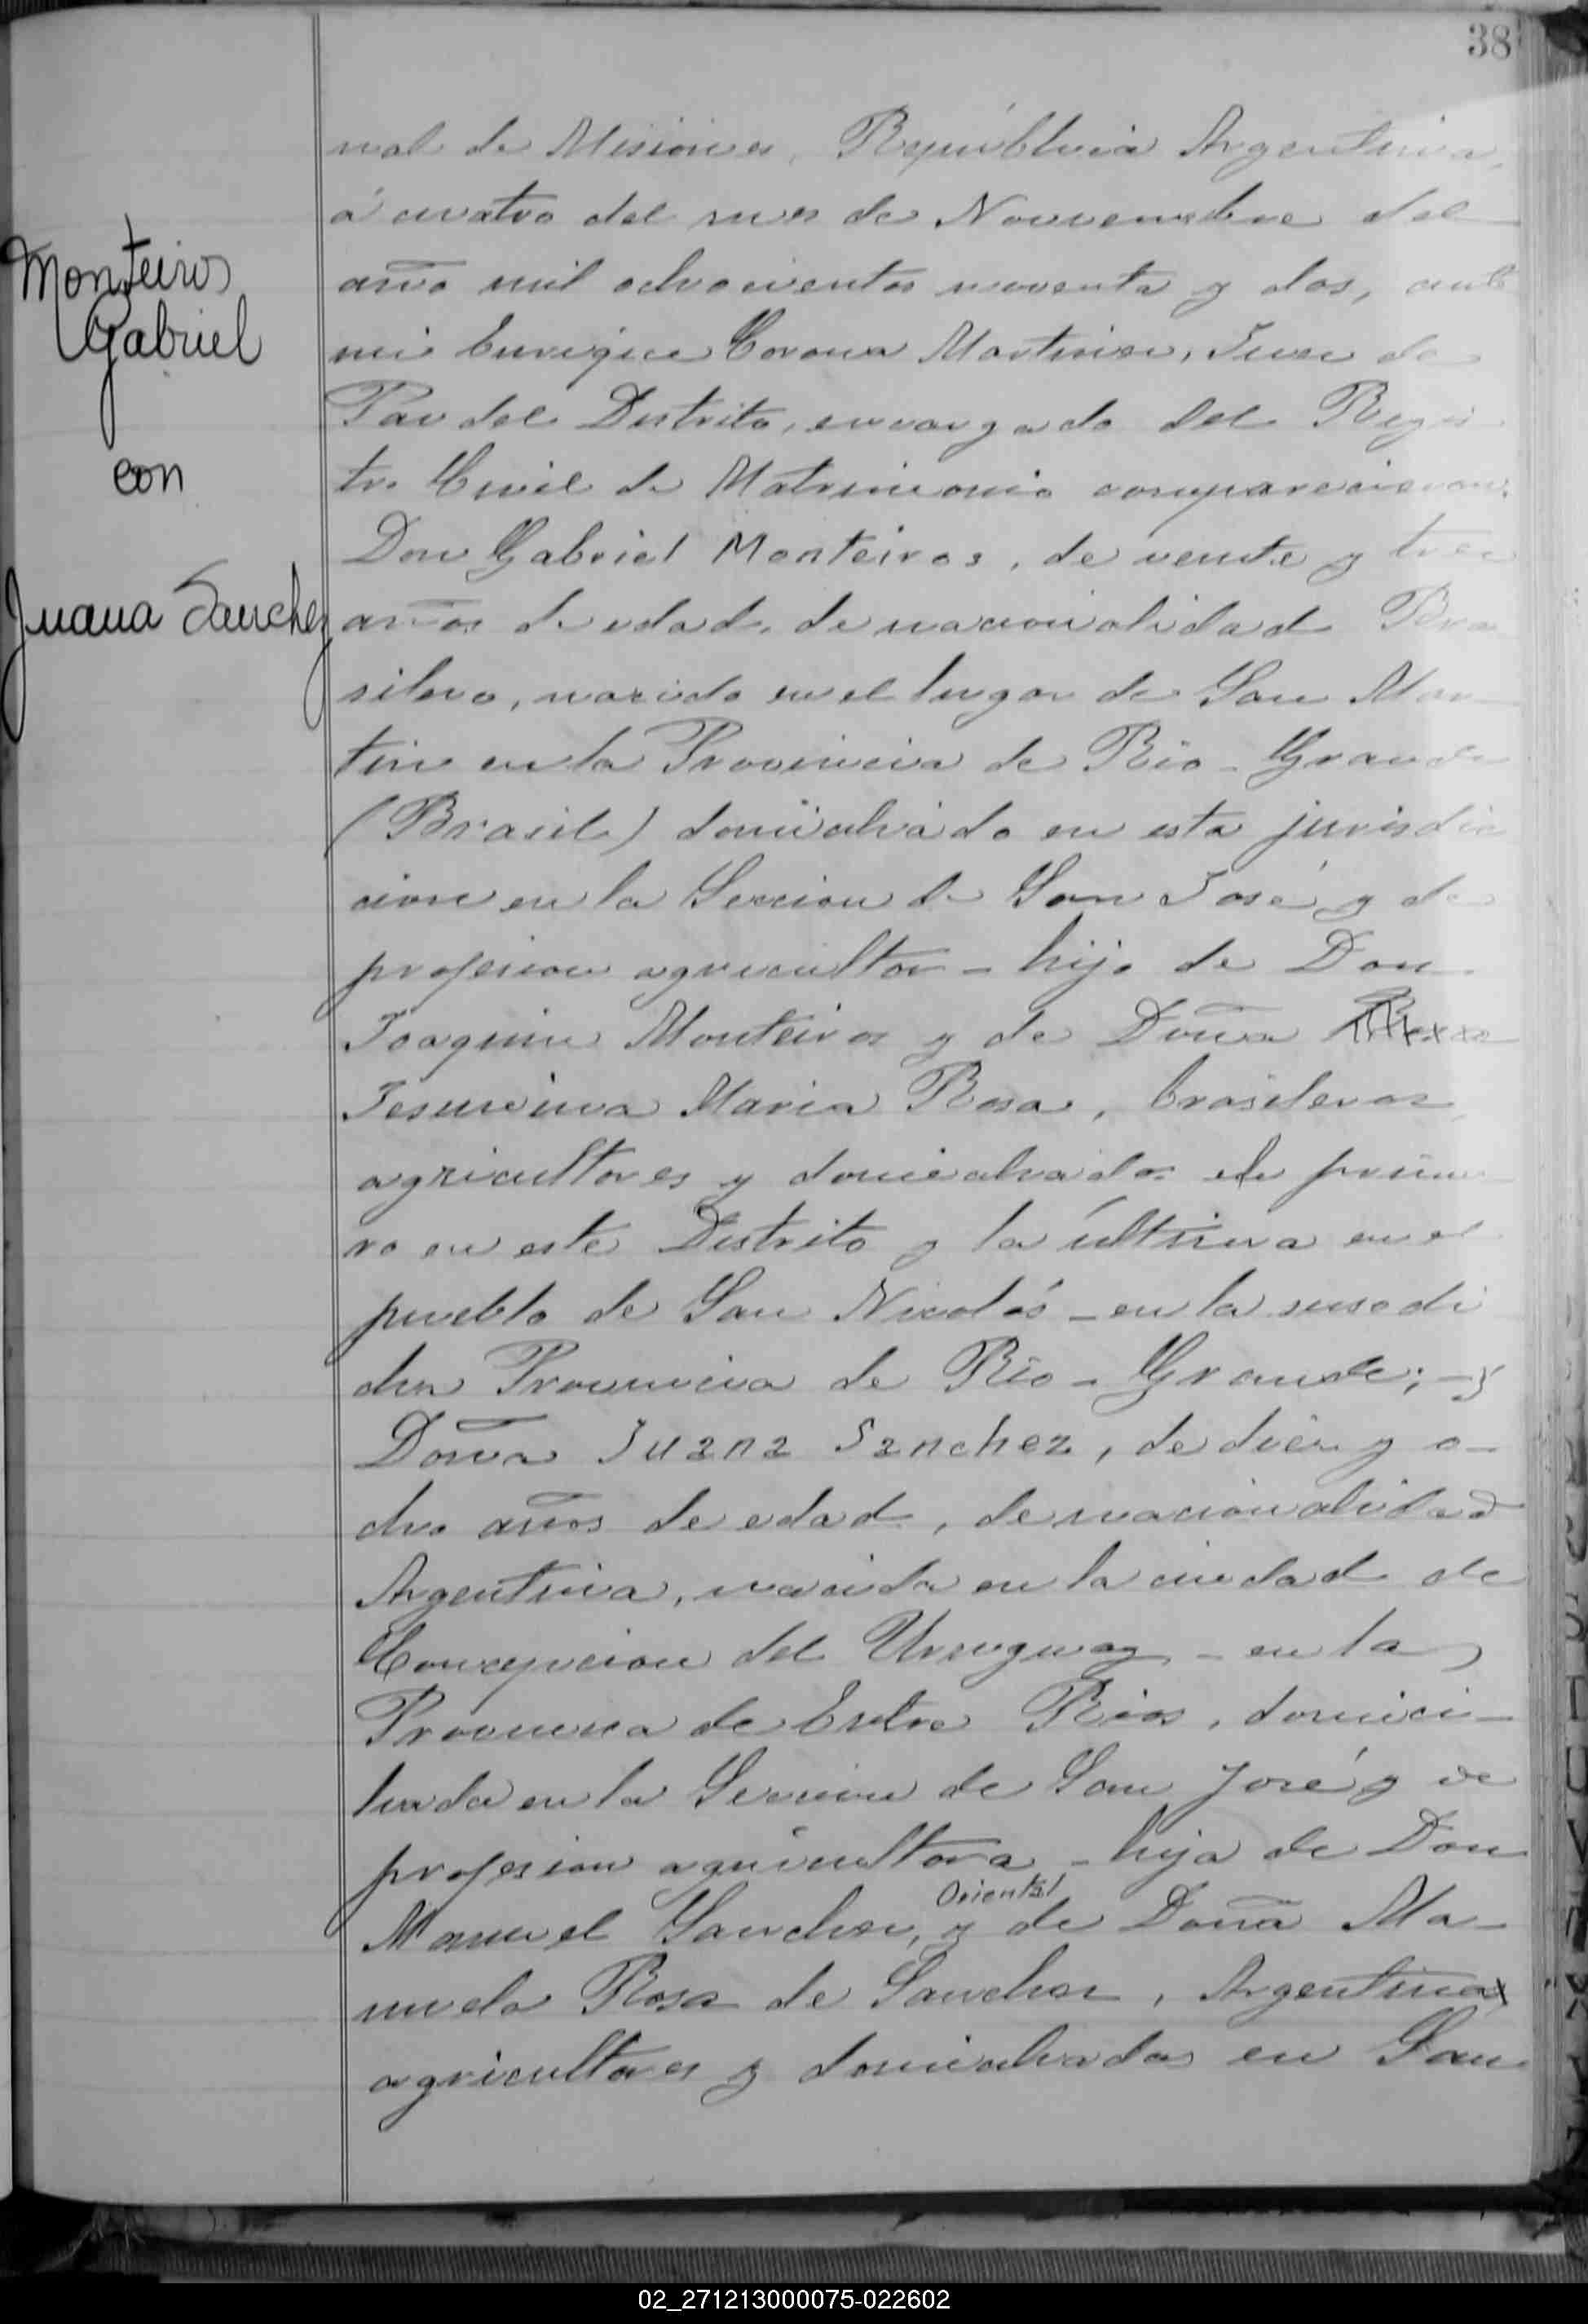 38
Monteiros
Gabriel
con
Juana Sanchez
nal de Misiones, República Argentina,
á cuatro del mes de Noviembre del
año mil ochocientos noventa y dos, ante
mi Enrique Corona Martinez, Juez de
Paz del Distrito, encargado del Regis
tro Civil de Matrimonio comparecieron:
Don Gabriel Monteiros, de veinte y tres
años de edad, de nacionalidad Bra
silero, nacido en el lugar de San Mar
tin en la Provincia de Rio-Grande
(Brasil) domiciliado en esta jurisdic
cion en la Seccion de San José y de
profesion agricultor - hijo de Don
Joaquin Monteiros y de Doña
Jesuina Maria Rosa, brasileros
agricultores y domiciliados el prime
ro en este Distrito y la última en el
pueblo de San Nicolás - en la susodi
cha Provincia de Rio-Grande; - y
Doña Juana Sanchez, de diez y o-
cho años de edad, de nacionalidad
Argentina, nacida en la ciudad de
Concepcion del Uruguay - en la
Provincia de Entre Rios, domici-
liada en la Seccion de San José y de
profesion agricultora - hija de Don
Oriental
Manuel Sanchez, y de Doña Ma-
nuela Rosa de Sanchez, Argentina
agricultores y domiciliados en San
02_271213000075-022602